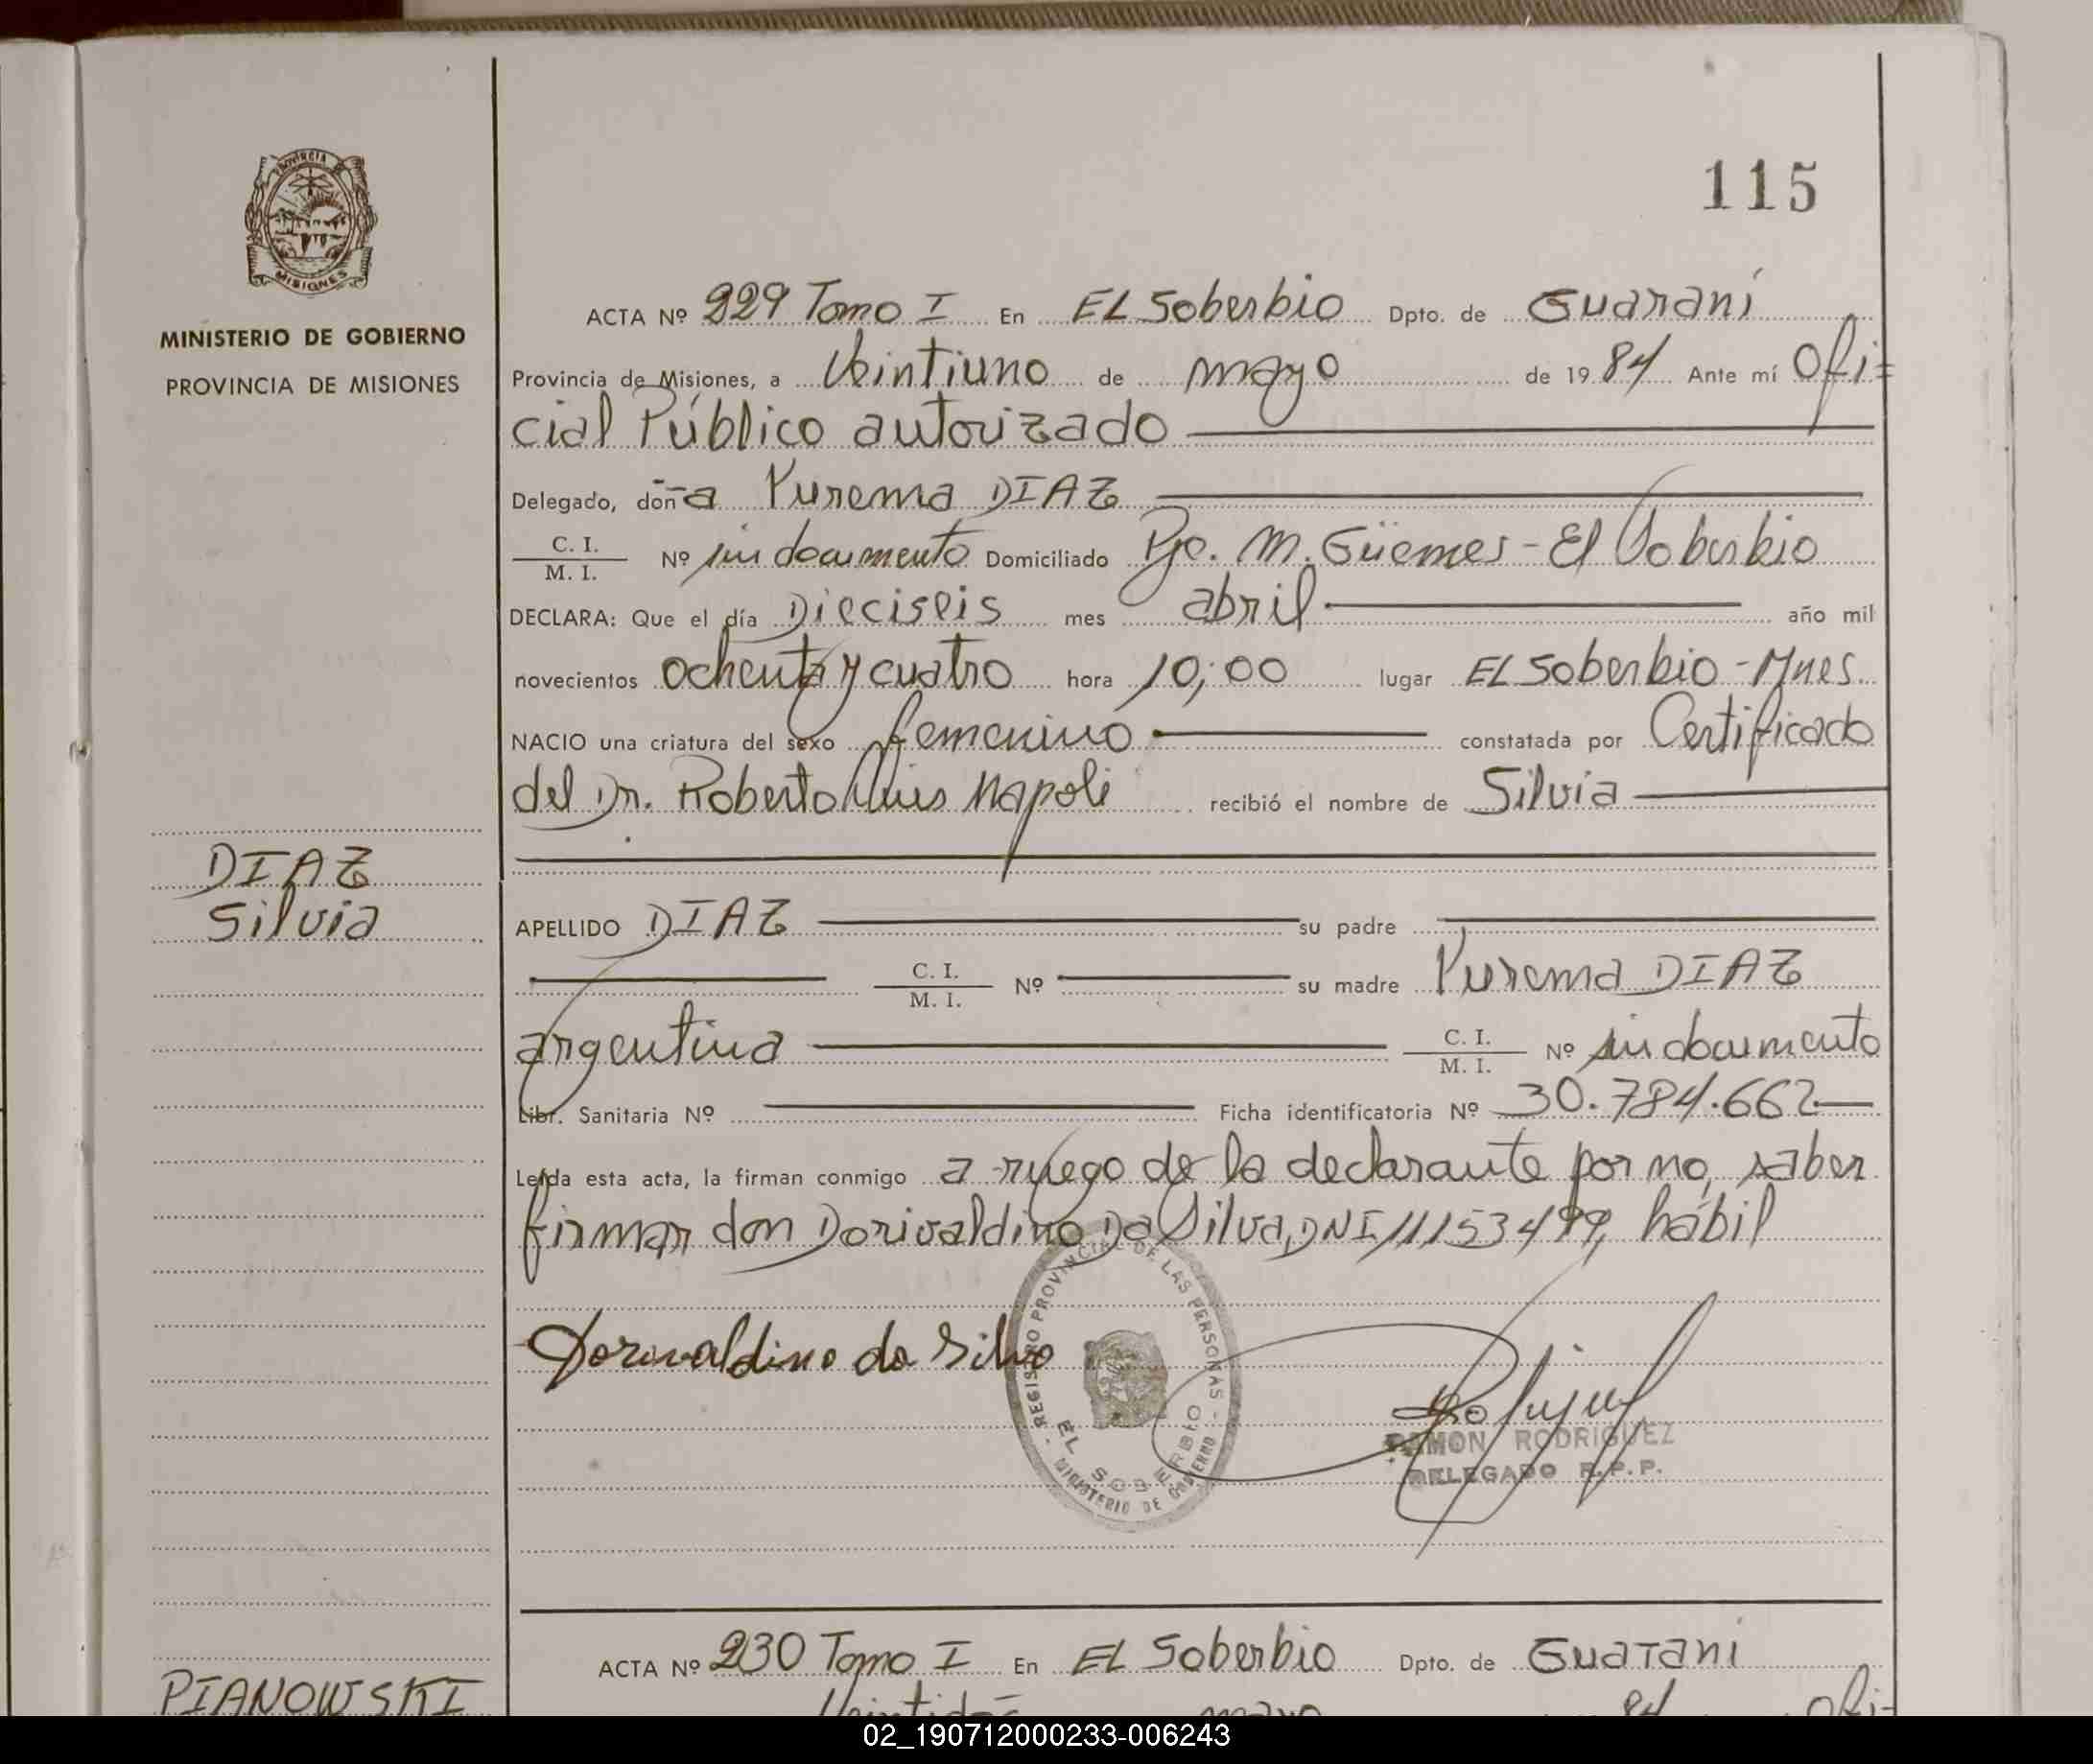 115
PROVINCIA
MISIONES
MINISTERIO DE GOBIERNO
PROVINCIA DE MISIONES
ACTA Nº 229 Tomo I En EL Soberbio Dpto. de Guaraní
Provincia de Misiones, a Veintiuno de mayo de 1984 Ante mí Ofi=
cial Público autorizado
Delegado, doña Yurema DIAZ
C. I.
M. I. Nº sin documento Domiciliado Pje. M. Güemes - El Soberbio
DECLARA: Que el día Dieciseis mes abril año mil
novecientos ochenta y cuatro hora 10;00 lugar EL Soberbio - Mnes.
NACIO una criatura del sexo femenino constatada por Certificado
del Dr. Roberto Luis Napoli recibió el nombre de Silvia
DIAZ
Silvia
APELLIDO DIAZ su padre
C. I.
M. I. Nº su madre Yurema DIAZ
argentina C. I.
M. I. Nº sin documento
Libr. Sanitaria Nº Ficha identificatoria Nº 30.784.662
Leída esta acta, la firman conmigo a ruego de la declarante por no saber
firmar don Dorivaldino Da Silva, DNI 11153499, hábil
Dorivaldino da Silva
REGISTRO PROVINCIAL DE LAS PERSONAS
EL SOBERBIO
MINISTERIO DE GOBIERNO
RAMON RODRIGUEZ
DELEGADO R.P.P.
ACTA Nº 230 Tomo I En EL Soberbio Dpto. de Guarani
PIANOWSKI
Veintidós mayo 84 Ofi-
02_190712000233-006243